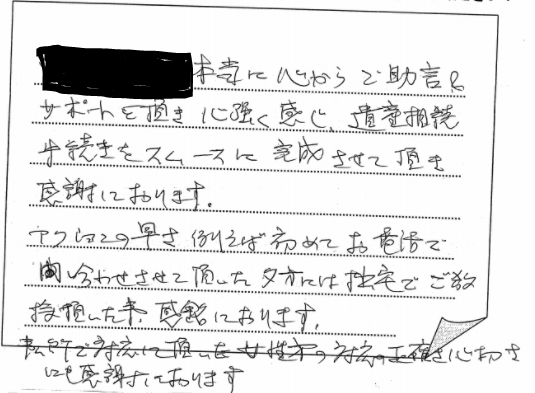 本当に心からご助言&
サポートを頂き心強く感じ、遺産相続
手続きをスムースに完成させて頂き
感謝しております。
アクションの早さ例えば初めてお電話で
問い合わせさせて頂いた夕方には拙宅でご教
授頂いた事、感銘しております。
で対応して頂いた女性方の対応の正確さ心切さ
にも感謝しております